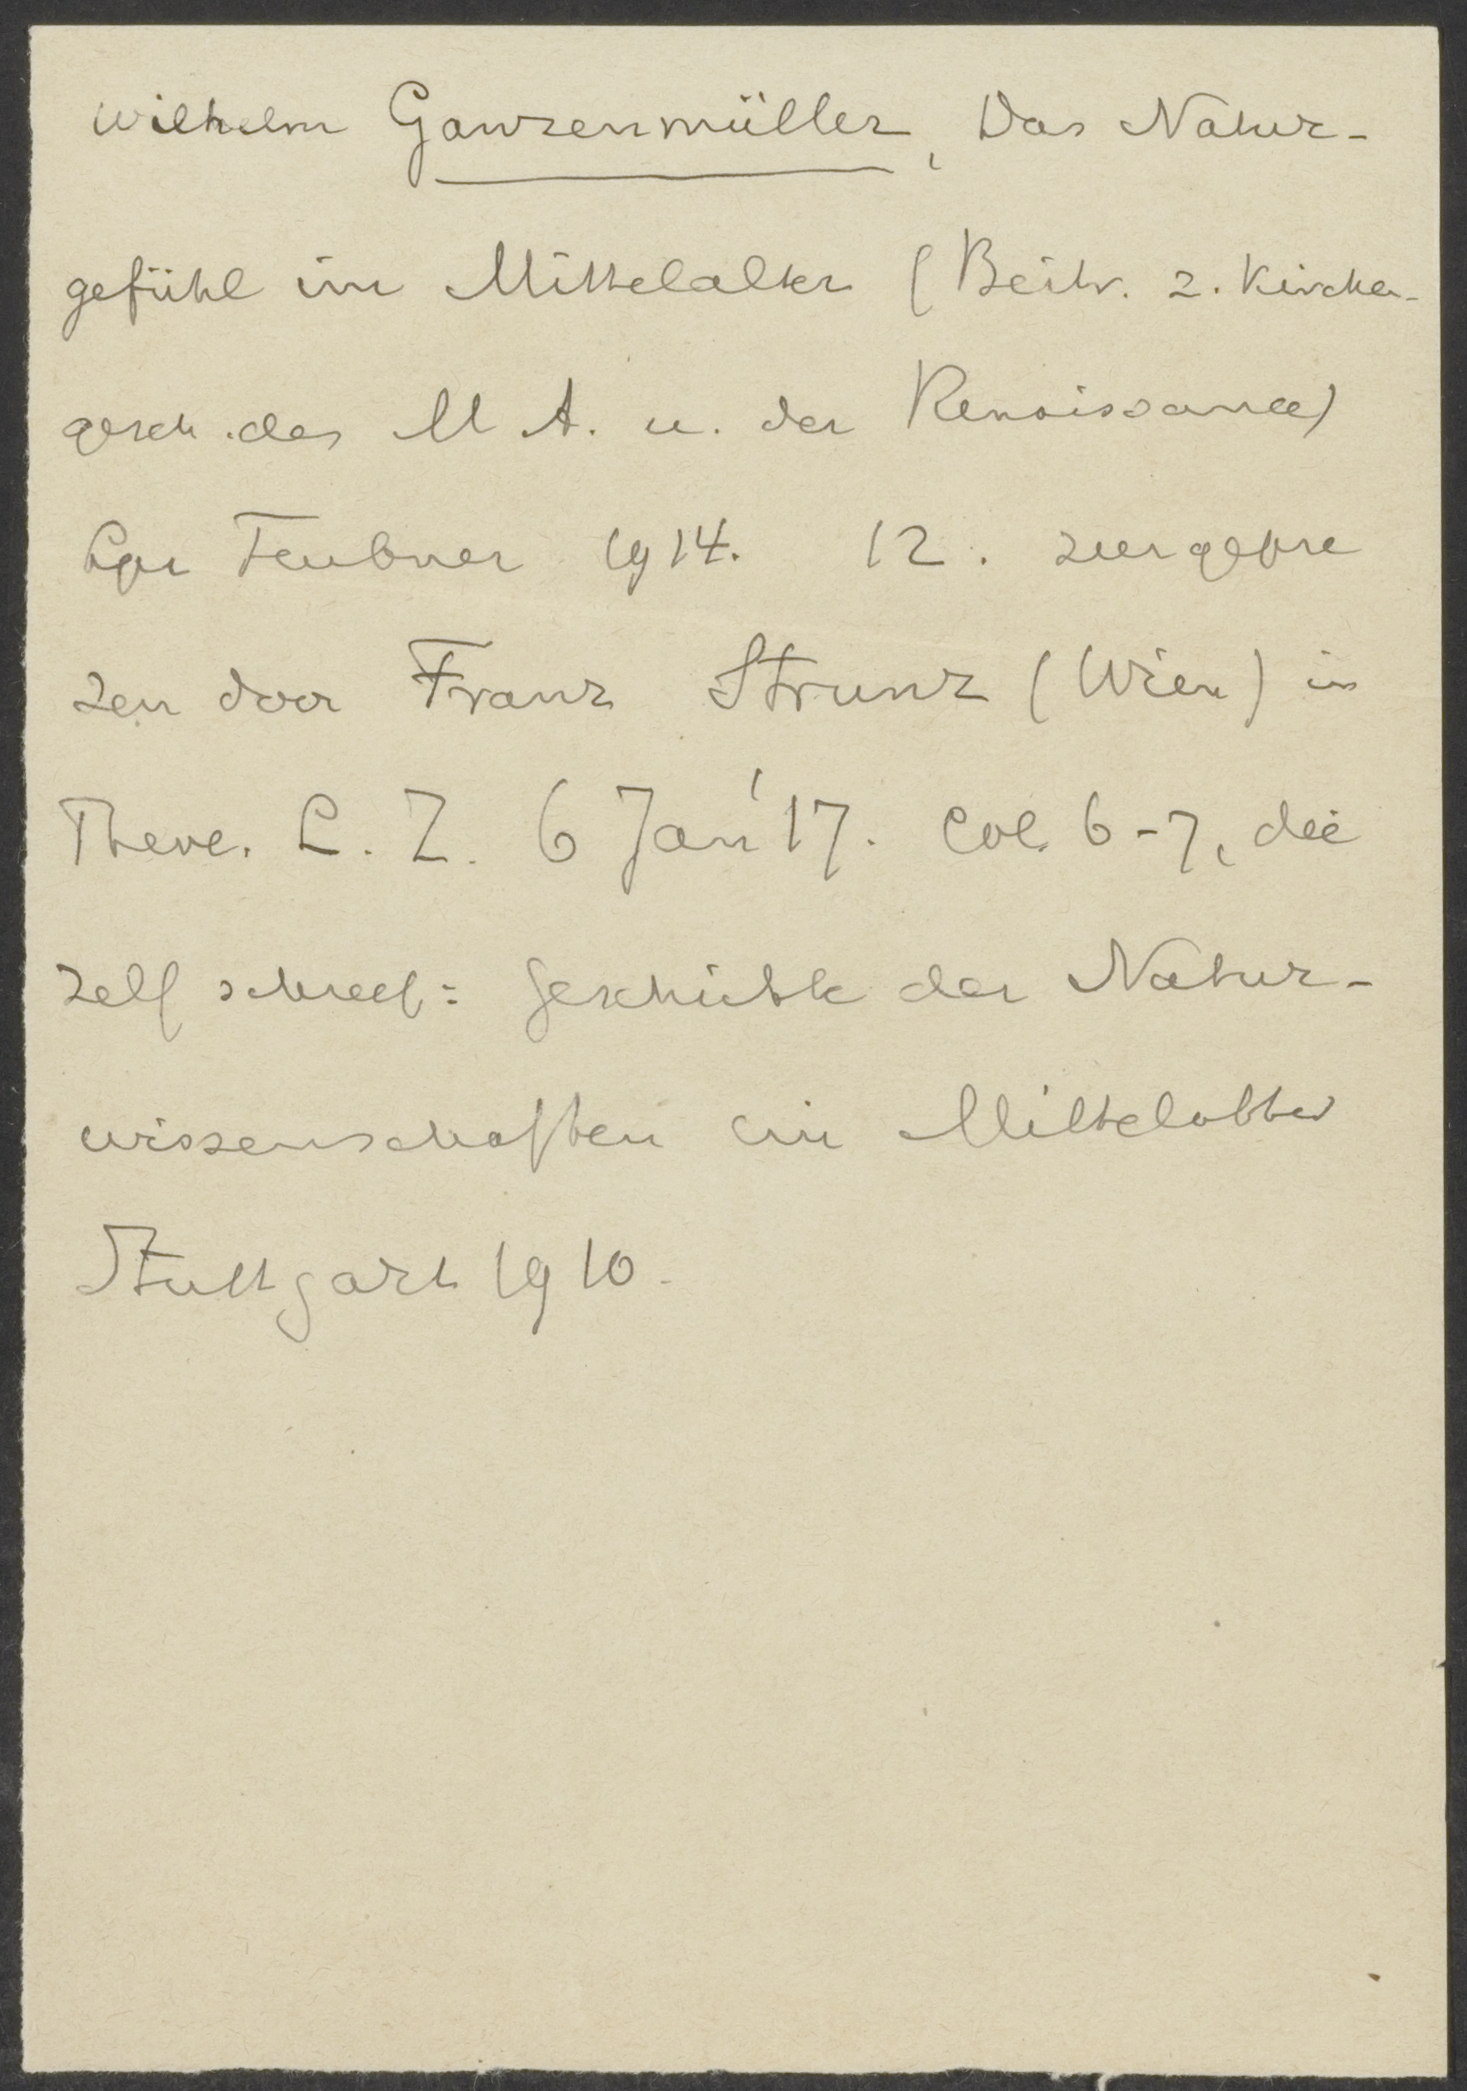 Wilhelm Ganzenmüller, Das Natur-
gefühl im Mittelalter (Beitr. z. Kirchen-
gesch. des M A. u. der Renaissance)
Lpz Teubner 1914. 12. zeer gepre
zen door Franz Strunz (Wien) in
Theol. L. Z. 6 Jan '17. Col. 6-7, die
zelf schreef: Geschichte der Natur-
wissenschaften im Mittelalter
Stuttgart 1910.